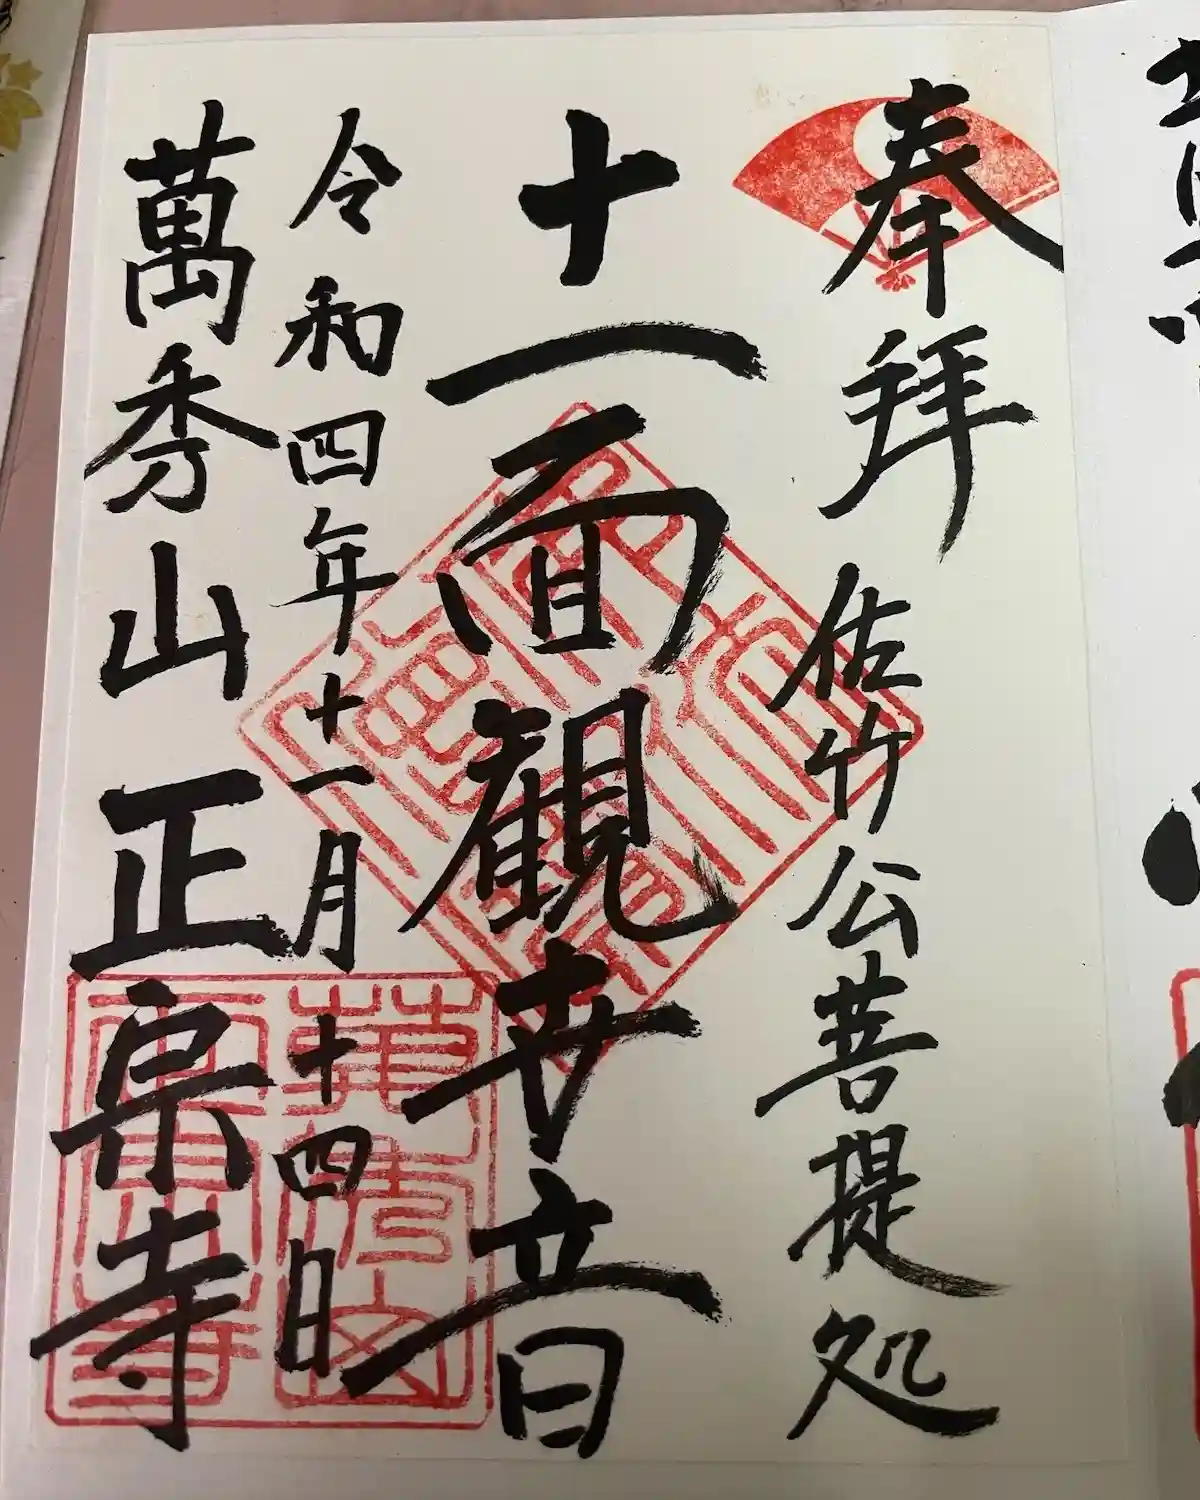 奉拝 佐竹公菩提処
十一面観世音
令和四年十一月十四日
萬秀山 正宗寺
萬秀山
正宗寺